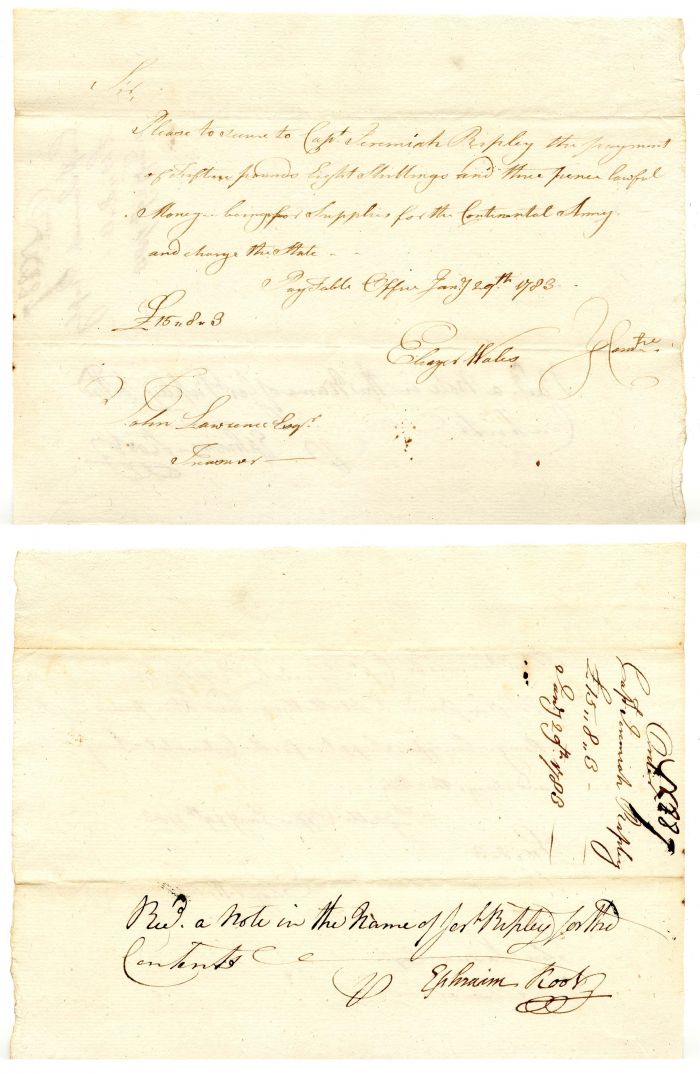 Sir,
Please to secure to Capt Jeremiah Ripley the payment
of Fifteen pounds Eight Shillings and three pence lawful
Money being for Supplies for the Continental Army
and charge the State
Pay Table Office Jany 29th 1783
£15 ,, 8 ,, 3
Eleazer Wales } Comtee
John Lawrence Esqr
Treasurer
Order
Capt Jeremiah Ripley
£15 ,, 8 ,, 3
Jany 29th 1783
Recd. a Note in the Name of Jerh Ripley for the
Contents
Ephraim Root